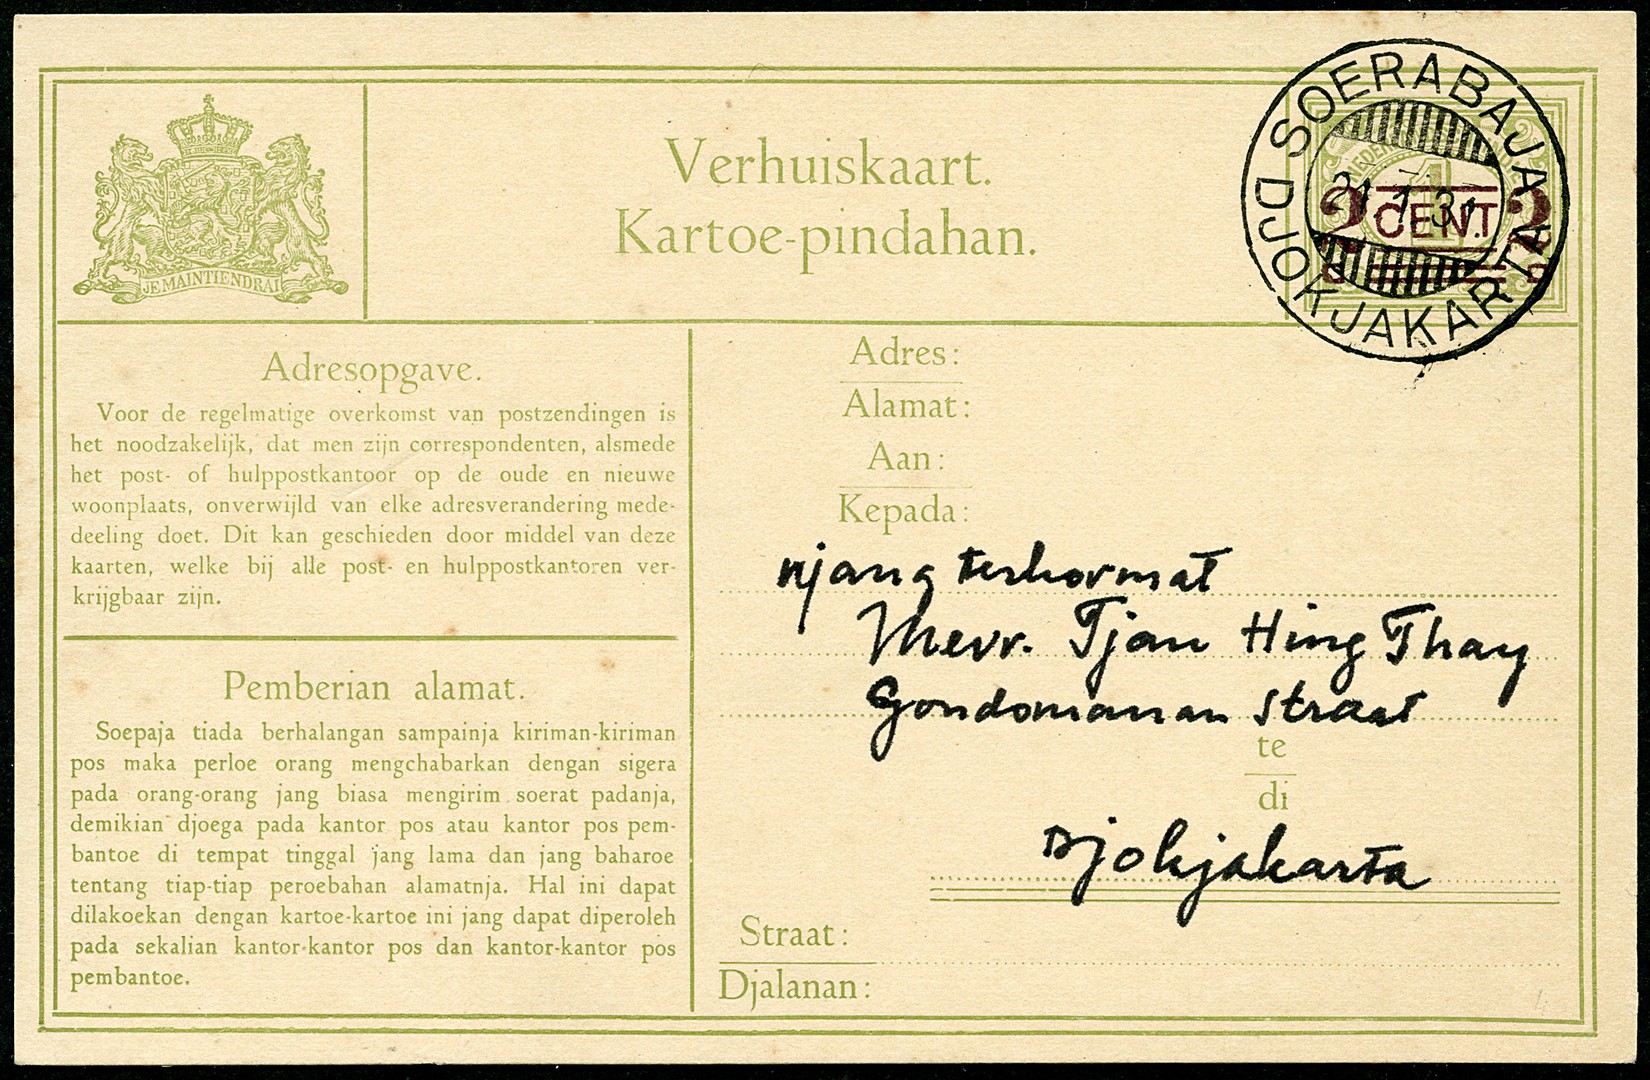 JE MAINTIENDRAI
Verhuiskaart.
Kartoe-pindahan.
SOERABAJA
DJOKJAKARTA
21.1.31.
2 CENT 2
Adresopgave.
Voor de regelmatige overkomst van postzendingen is
het noodzakelijk, dat men zijn correspondenten, alsmede
het post- of hulppostkantoor op de oude en nieuwe
woonplaats, onverwijld van elke adresverandering mede-
deeling doet. Dit kan geschieden door middel van deze
kaarten, welke bij alle post- en hulppostkantoren ver-
krijgbaar zijn.
Pemberian alamat.
Soepaja tiada berhalangan sampainja kiriman-kiriman
pos maka perloe orang mengchabarkan dengan sigera
pada orang-orang jang biasa mengirim soerat padanja,
demikian djoega pada kantor pos atau kantor pos pem-
bantoe di tempat tinggal jang lama dan jang baharoe
tentang tiap-tiap peroebahan alamatnja. Hal ini dapat
dilakoekan dengan kartoe-kartoe ini jang dapat diperoleh
pada sekalian kantor-kantor pos dan kantor-kantor pos
pembantoe.
Adres:
Alamat:
Aan:
Kepada:
njang terhormat
Mevr. Tjan Hing Thay
Gondomanan Straat
te
di
Djokjakarta
Straat:
Djalanan: